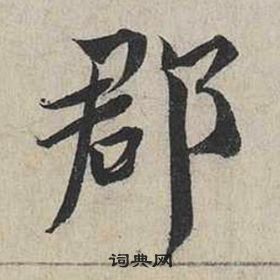 郡
词典网